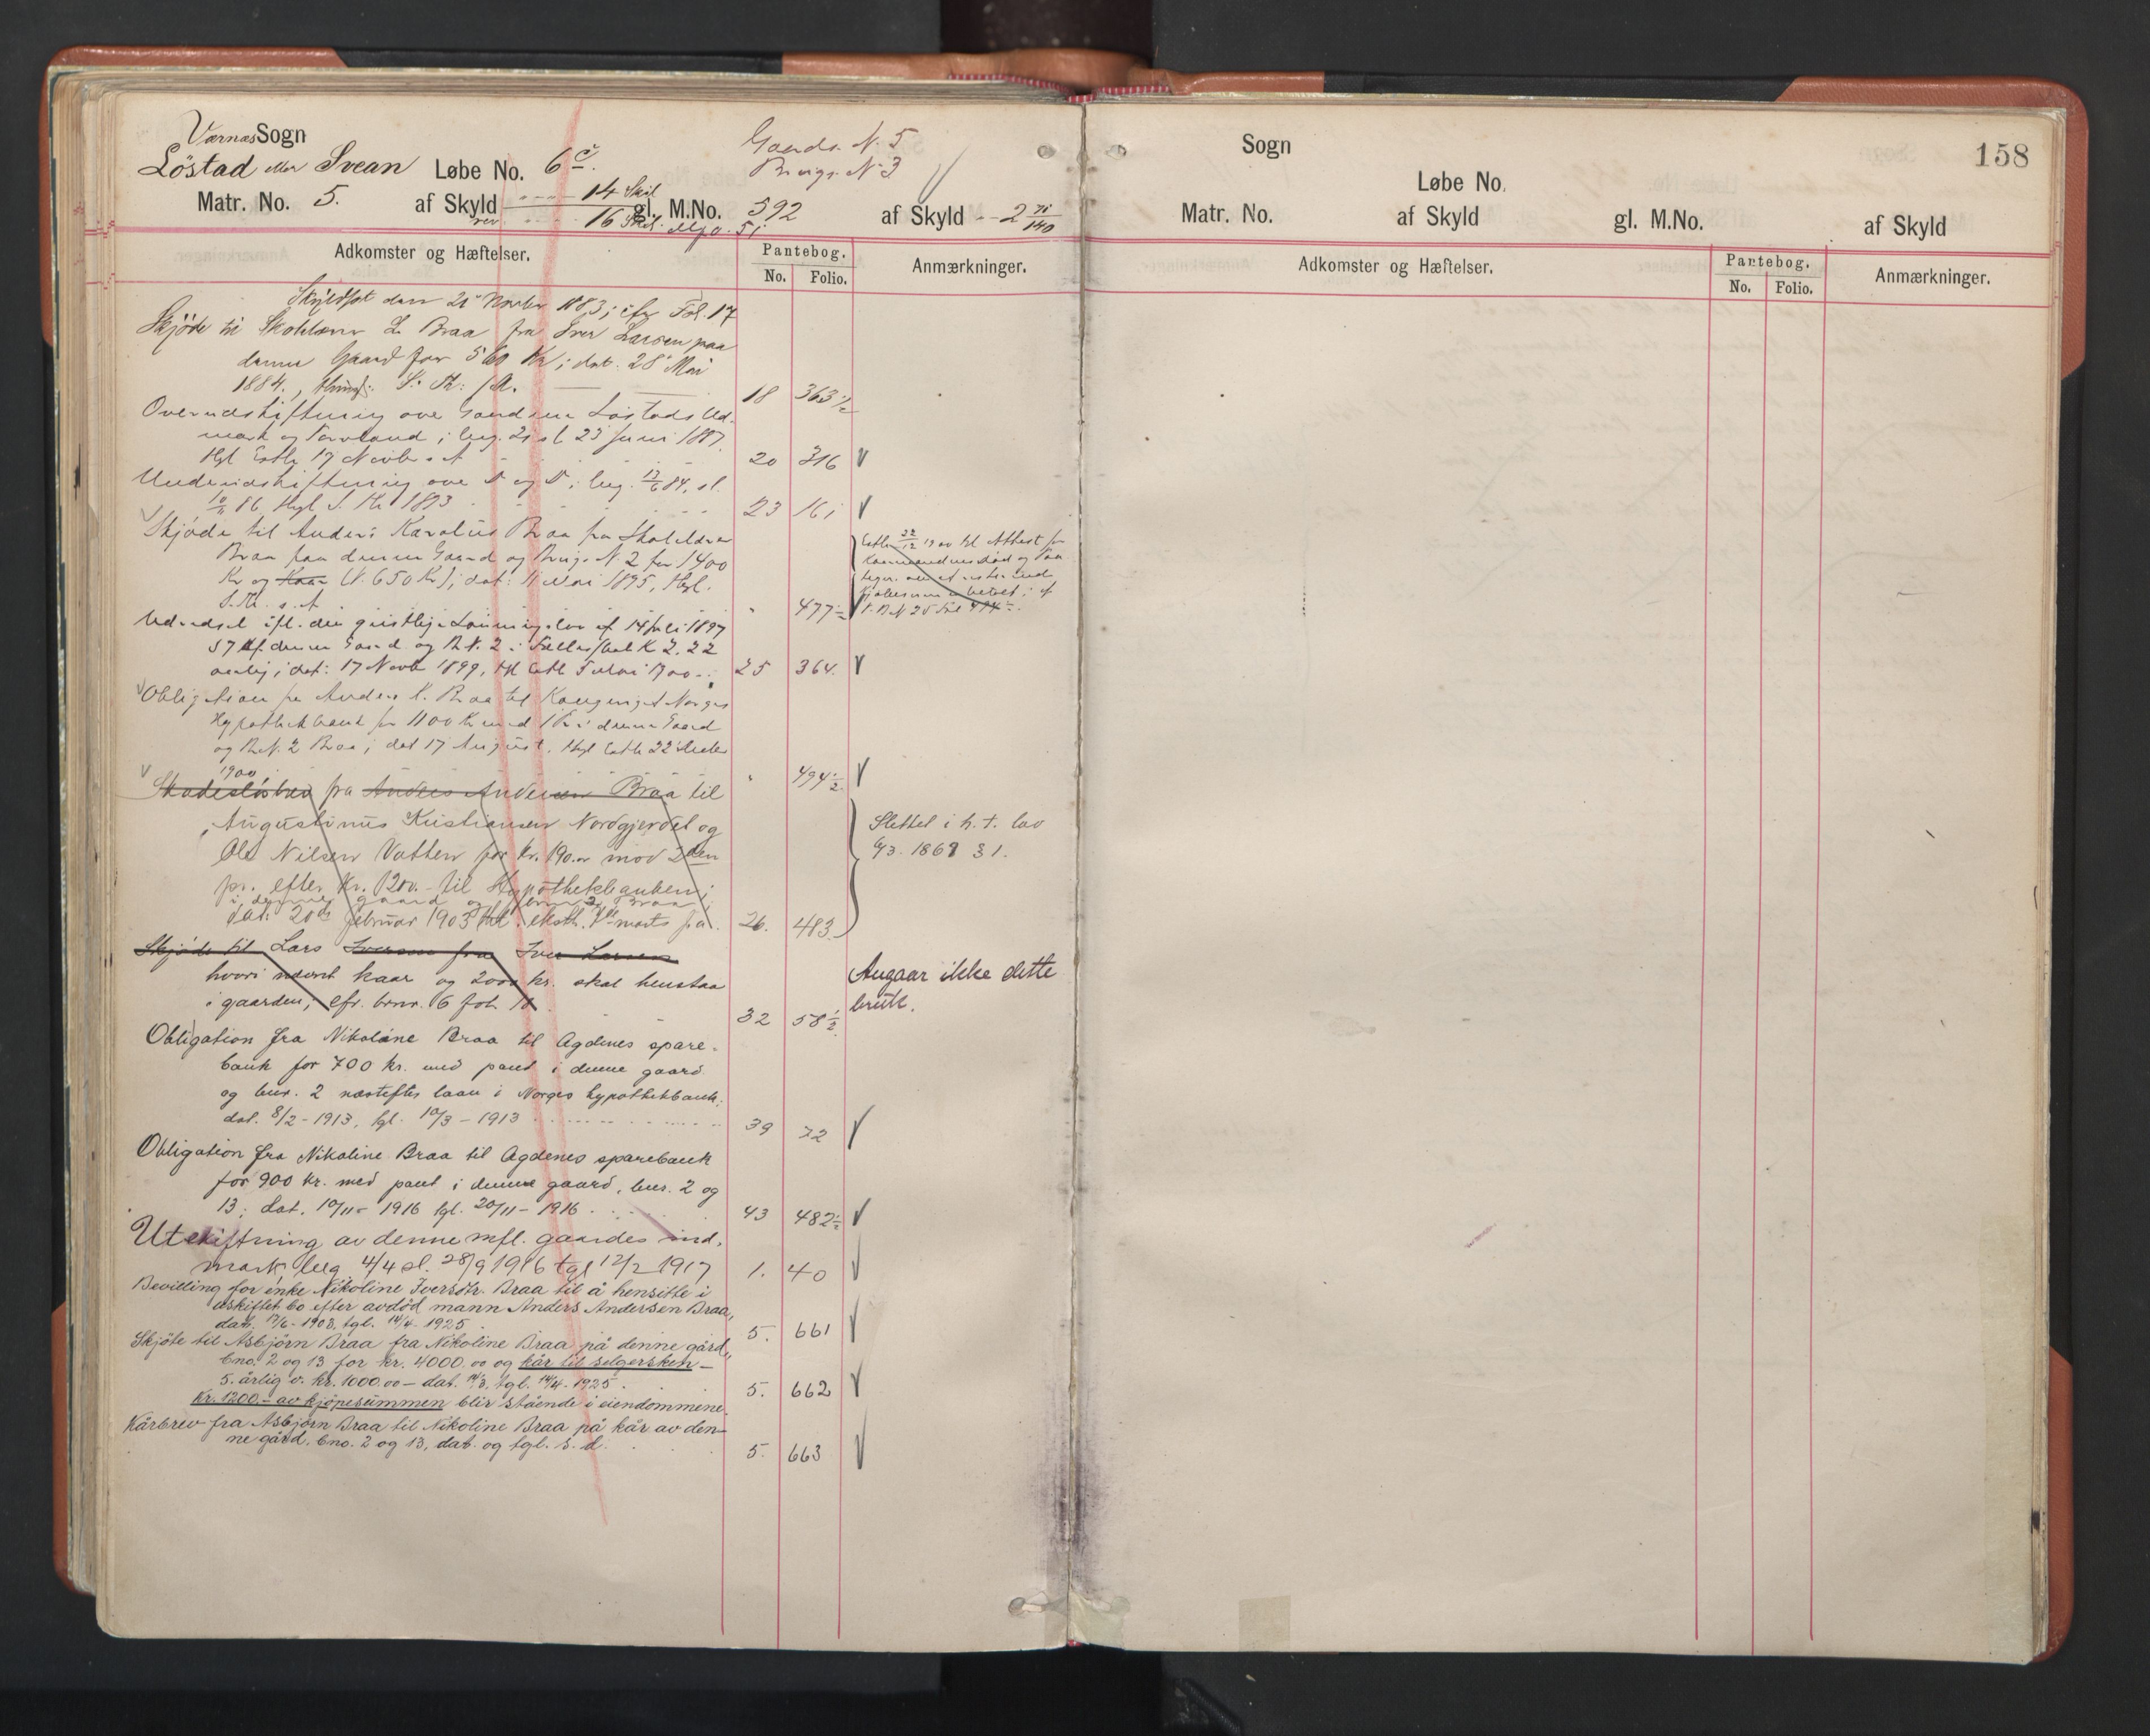 Værnes Sogn
Gaards N. 5
Löstad eller Svean Løbe No. 6 c.
Brugs N 3
Matr. No. 5. af Skyld 14 Skil gl. M.No. 592 af Skyld - 2
rev 16 Skil.
Adkomster og Hæftelser.
Pantebog.
No. Folio.
Anmærkninger.
Skyldsat den Novbr 1883; cfr Fol. 17
Skjöde til L. Braa fra Iver Larsen paa
denne Gaard for 560 Kr; dat. 28 Mai
1884. 18 363 ½
Overudskiftning over Gaardene Löstads Ud-
mark og ; beg. 23 Juni 1887.
17 Novbr s. A 20 316 V
Underudskiftning over D og D; beg. sl.
86, tgl. 1893 23 161 V
Skjöde til Anders Karolius Braa fra
Braa paa denne Gaard og Brugs N. 2 for 1400
Kr og Kaar (V. 650 Kr); dat: 11 Mai 1895, tgl.
S. Th. s. A " 477 ½ V
22/12 1900 tgl Attest
Udredsel ifl. den geistlige Lönningslov af 14 Juli 1897
af denne Gaard og B.N. 2 i K 2.22
aarlig; dat: 17 Novbr 1899, 25 364. V
Obligation fra Anders K. Braa til Kongeriget Norges
Hypothekbank for 1100 Kr med 1 Pr i denne Gaard
og B.N. 2 Braa; dat 17 August, tgl 22
1900 " 494 ½ V
Skadeslösbrev fra Anders Andersen Braa til
Augustinus Kristiansen Nordgjerdet og
Ole Nilsen Vatten for kr. 190.00 mod 2den
pr. efter kr. 1200.- til Hypothekbanken;
i denne gaard og brnr 2 Braa;
dat: 20de februar 1903 tgl. marts s.a. 26. 483.
Slettet i h. t. lov
31.
Skjöde til Lars Iversen fra Iver Larsen
hvori nævnt kaar og 2000 kr. skal henstaa
i gaarden; cfr. brnr. 6 fol. 18. 32 58 ½
Angaar ikke dette
bruk.
Obligation fra Nikoline Braa til Agdenes spare-
bank for 700 kr. med pant i denne gaard
og bnr. 2 næstefter laan i Norges hypothekbank;
dat. 8/2 - 1913, tgl. 10/3 - 1913 39 72 V
Obligation fra Nikoline Braa til Agdenes sparebank
for 900 kr. med pant i denne gaard, bnr. 2 og
13; dat. 10/11 - 1916 tgl. 20/11 - 1916 43 482 ½ V
Utskiftning av denne mfl. gaardes ind-
mark, beg 4/4 sl. 28/9 1916 tgl 12/2 1917 1. 40 V
Bevilling for enke Nikoline Iversdtr. Braa til å hensitte i
uskiftet bo efter avdöd mann Anders Andersen Braa,
dat. 17/6 - 1908, tgl. 14/4 - 1925 5. 661 V
Skjöte til Asbjörn Braa fra Nikoline Braa på denne gård,
bno. 2 og 13 for kr. 4000.00 og kår til selgersken -
5. årlig v. kr. 1000.00 - dat. tgl. 14/4 - 1925. 5. 662 V
Kr. 1200.- av kjöpesummen blir stående i eiendommene.
Kårbrev fra Asbjörn Braa til Nikoline Braa på kår av den-
ne gård, bno. 2 og 13, dat. og tgl. s. d. 5. 663 V
Sogn
158
Løbe No.
Matr. No. af Skyld gl. M.No. af Skyld
Adkomster og Hæftelser.
Pantebog.
No. Folio.
Anmærkninger.